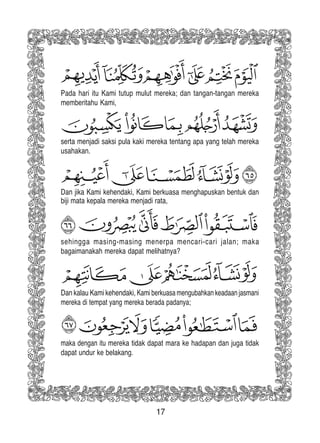 ٱلۡيَوۡمَ نَخۡتِمُ عَلَىٰٓ أَفۡوَٰهِهِمۡ وَتُكَلِّمُنَآ أَيۡدِيهِمۡ
Pada hari itu Kami tutup mulut mereka; dan tangan-tangan mereka
memberitahu Kami,
وَتَشۡهَدُ أَرۡجُلُهُم بِمَا كَانُواْ يَكۡسِبُونَ
serta menjadi saksi pula kaki mereka tentang apa yang telah mereka
usahakan.
٦٥ وَلَوۡ نَشَآءُ لَطَمَسۡنَا عَلَىٰٓ أَعۡيُنِهِمۡ
Dan jika Kami kehendaki, Kami berkuasa menghapuskan bentuk dan
biji mata kepala mereka menjadi rata,
فَٱسۡتَبَقُواْ ٱلصِّرَٰطَ فَأَنَّىٰ يُبۡصِرُونَ ٦٦
sehingga masing-masing menerpa mencari-cari jalan; maka
bagaimanakah mereka dapat melihatnya?
وَلَوۡ نَشَآءُ لَمَسَخۡنَٰهُمۡ عَلَىٰ مَكَانَتِهِمۡ
Dan kalau Kami kehendaki, Kami berkuasa mengubahkan keadaan jasmani
mereka di tempat yang mereka berada padanya;
فَمَا ٱسۡتَطَٰعُواْ مُضِيّٗا وَلَا يَرۡجِعُونَ ٦٧
maka dengan itu mereka tidak dapat mara ke hadapan dan juga tidak
dapat undur ke belakang.
17